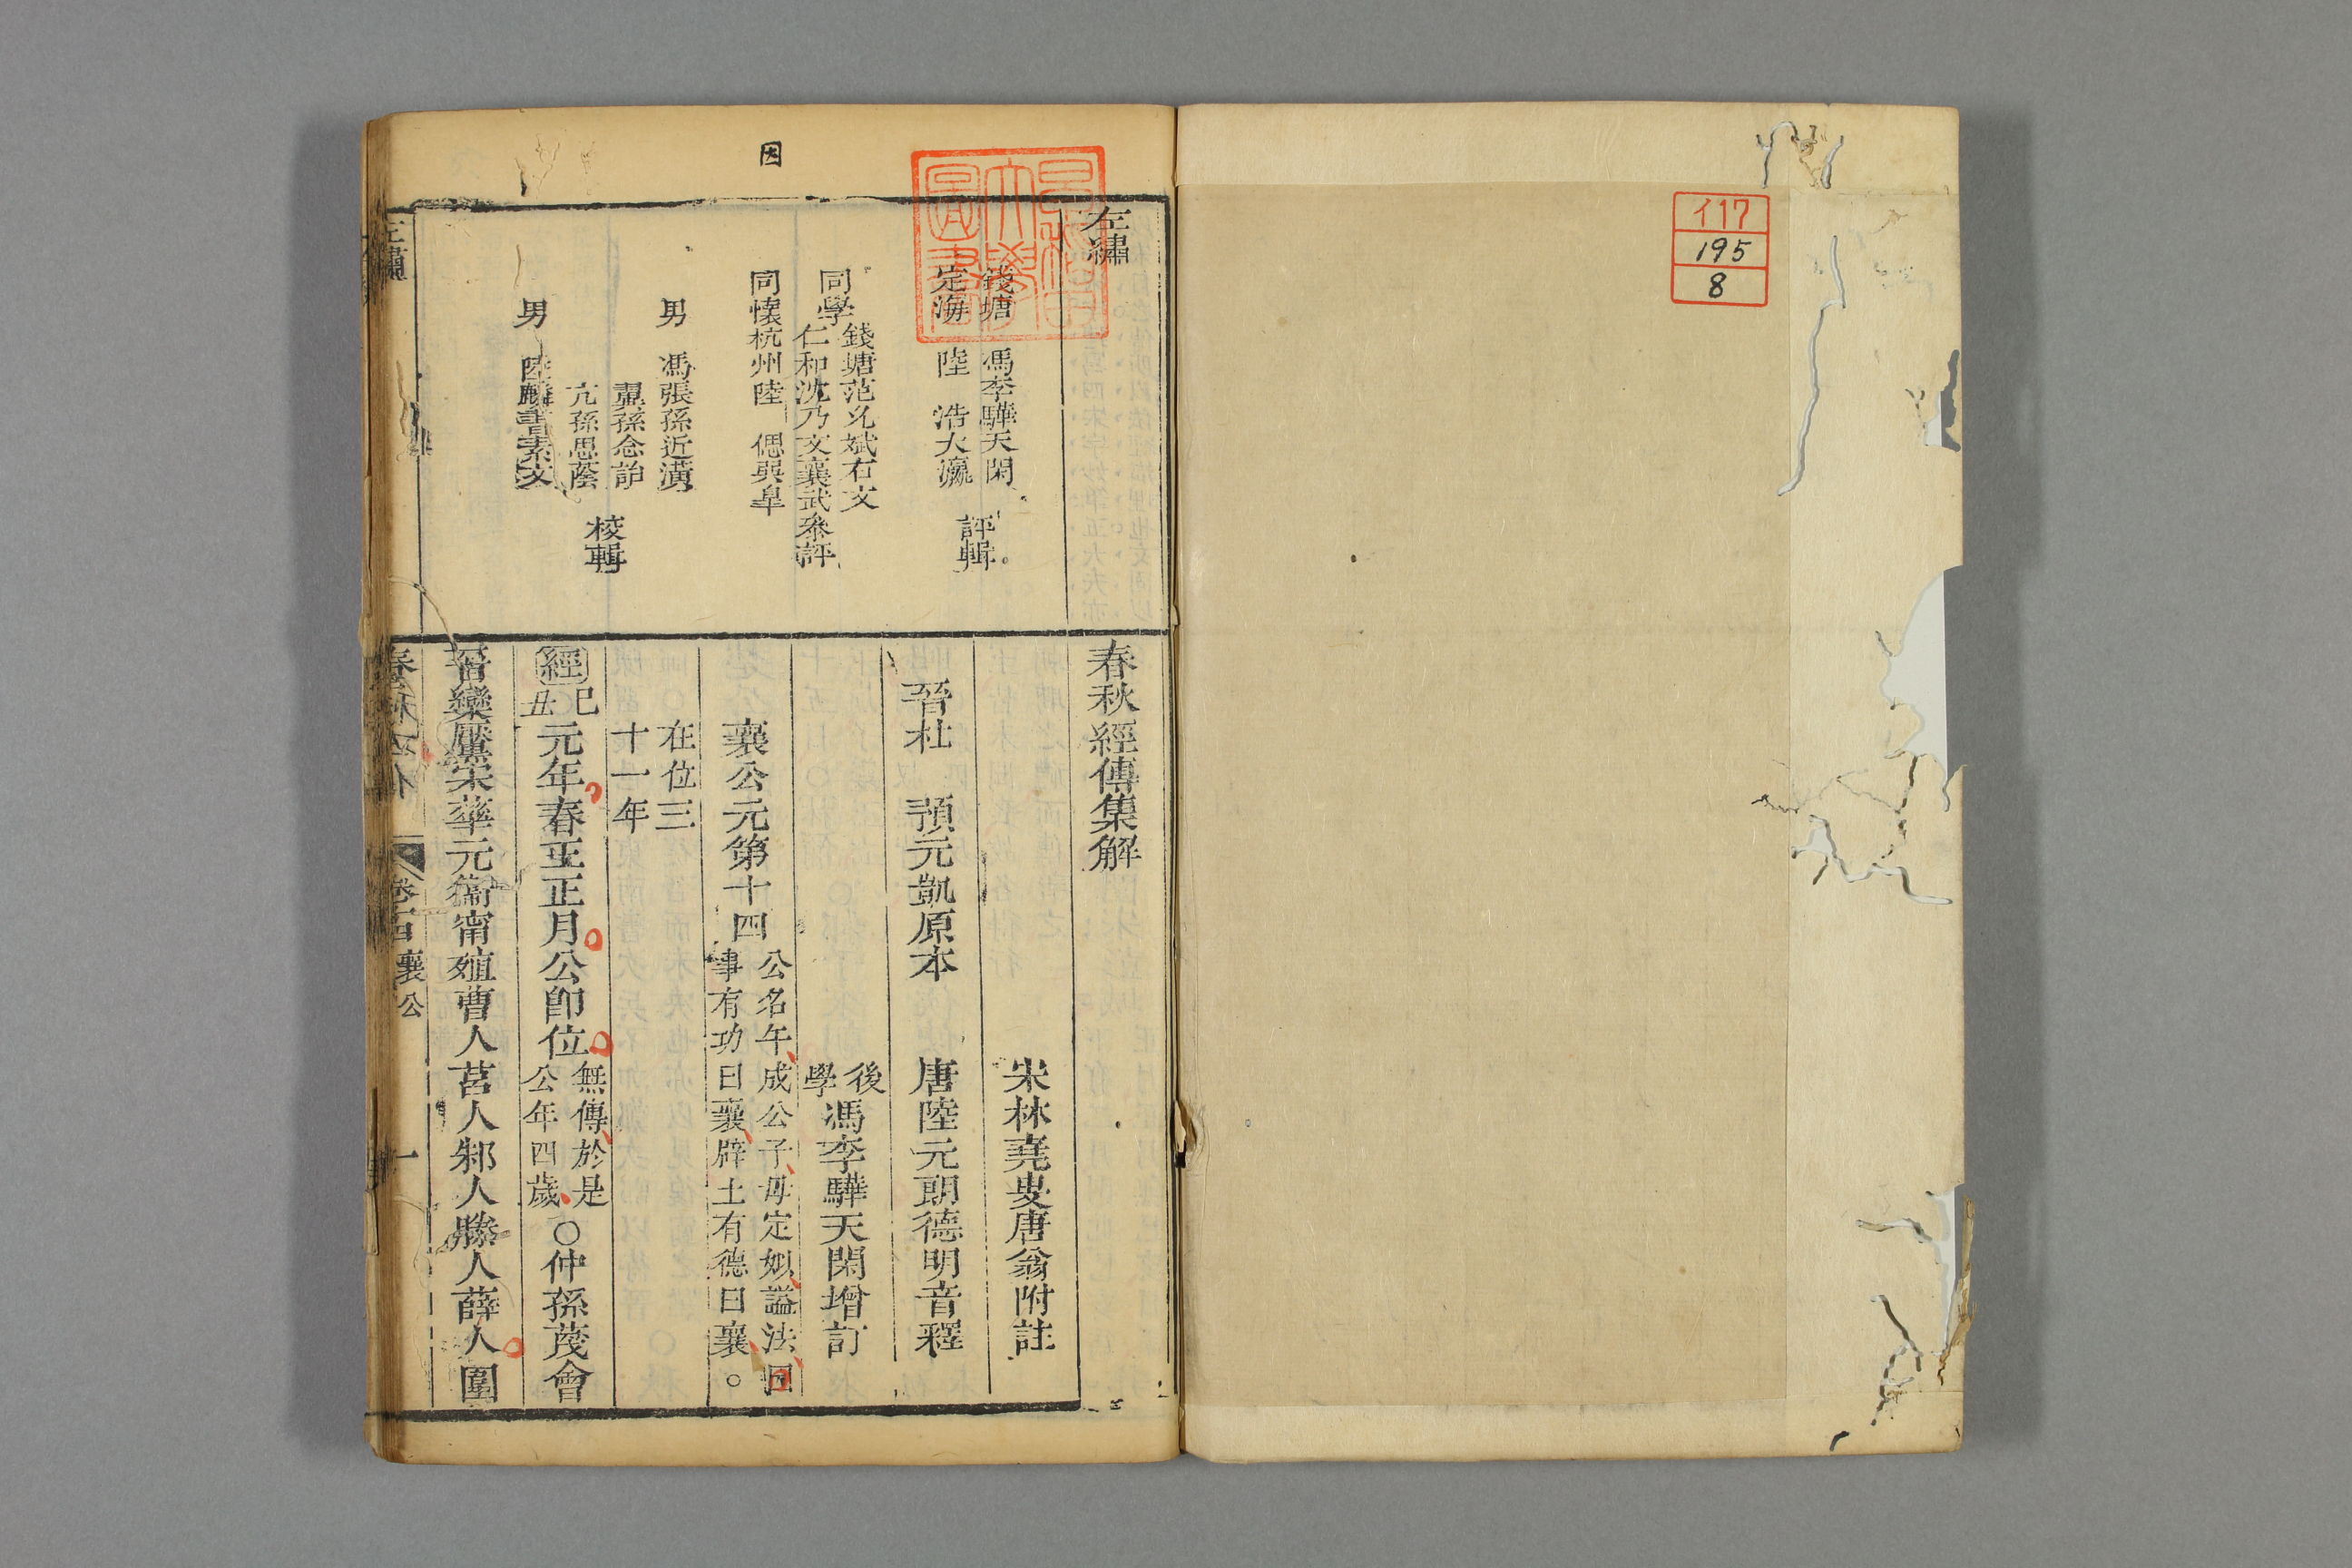 イ17
195
8
因
左繡
錢塘 馮李驊天閑
定海 陸 浩大瀛
評輯
同學
錢塘范允斌右文
仁和沈乃文襄武
叅評
同懷杭州陸 偲巽臯
男 馮張孫近潢
翼孫念詒
亢孫思蔭
男 陸麟書素文
校輯
春秋經傳集解
宋林堯叟唐翁附註
晉杜 預元凱原本 唐陸元朗德明音釋
後學馮李驊天閑增訂
襄公元第十四
公名午成公子母定姒謚法因
事有功曰襄辟土有德曰襄。
在位三
十一年
經
己丑
元年春王正月公卽位
無傳於是
公年四歲
○仲孫蔑會
晉欒黶宋華元衞甯殖曹人莒人邾人滕人薛人圍
左繡
襄公
一